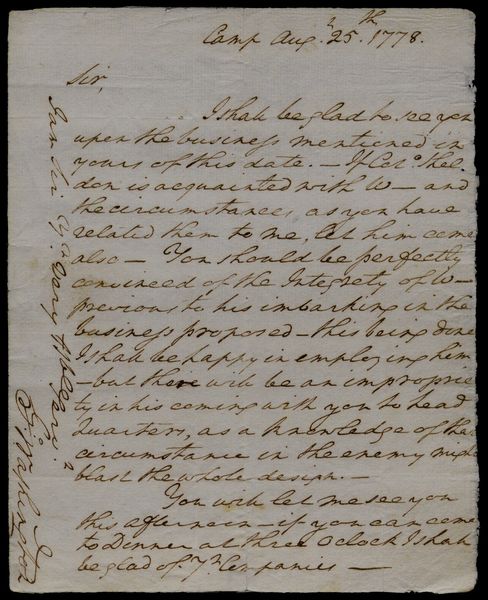 Camp Augt. 25th. 1778.
Sir,
I shall be glad to see you
upon the business mentioned in
yours of this date. – If Colo. Shel-
don is acquainted with W— and
the circumstances, as you have
related them to me, let him come
also – You should be perfectly
convinced of the Integrety of W—
previous to his imbarking in the
business proposed – this being done
I shall be happy in employing him
– but there will be an improprie
ty in his coming with you to head
Quarters, as a knowledge of the
circumstance in the enemy might
blast the whole design. –
You will let me see you
this afternoon – if you can come
to Dinner at three Oclock I shall
be glad of yr. Companies –
I am Sir Yr. Very Hble Servt.
Go: Washington